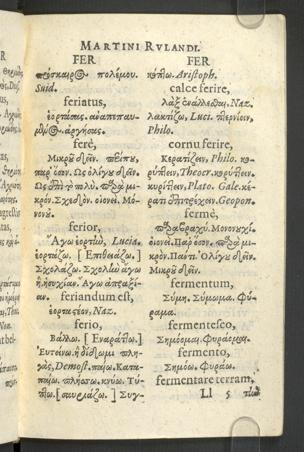 MARTINI RVLANDI.
FER
πρόσκαιρος πολέμου.
Suid.
feriatus,
ἑορτάσας. ἀναπεπαυ-
μένος. ἀργήσας.
ferè,
Μικροῦ δεῖν.
παρ' ὅσον. Ὡς ὀλίγου δεῖν.
Ὡς ἐπὶ τὸ πολύ. παρὰ μι-
κρόν. Σχεδόν. οἱονεί. Μό-
νονυ.
ferior,
Ἄγω ἑορτὴν, Lucia.
ἑορτάζω. [Ἐπιθειάζω.]
Σχολάζω. Σχολὴν ἄγω
ἢ ἡσυχίαν. Ἄγω ἀπραξί-
αν.
feriandum est,
ἑορταστέον, Naz.
ferio,
Βάλλω. [Ἐναράττω.]
Ἐντείνω ἢ δίδωμι πλη-
γὰς, Demost. παίω. Κατα-
παίω. πλήσσω. κρύω. Τύ-
πτω. Συγ-
FER
κόπτω. Aristoph.
calce ferire,
λὰξ ἐνάλλεσθαι, Naz.
λακτίζω, Luci. πτερνίειν,
Philo.
cornu ferire,
Κερατίζειν, Philo. κο-
ρύπτειν, Theocr. κυρύπτειν.
κυρίπτειν, Plato. Gale. κέ-
ρατι Geopon.
fermè,
παραβραχύ. Μονονυχί.
οἱονεί. Παρ' ὅσον. παρὰ μι-
κρόν. Παντί. Ὀλίγου δεῖν.
Μικροῦ δεῖν.
fermentum,
Ζύμη. Ζύμωμα. Φύ-
ραμα.
fermentesco,
Ζημόομαι. Φυράομαι.
fermento,
Ζημόω. Φυράω.
fermentare terram,
Ll 5